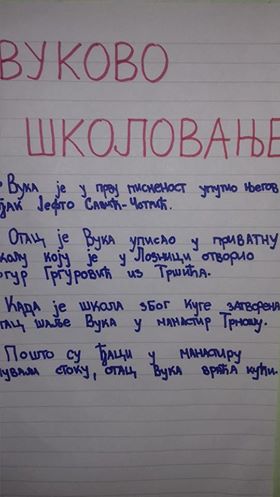 ВУКОВО
ШКОЛОВАЊЕ
Вука је у прву писменост упутио његов
ђак Јефто Савић-Чотрић.
Отац је Вука уписао у приватну
колу коју је у Лозници отворио
ргур Гргуровић из Тршића.
Када је школа због куге затворена
тац шаље Вука у манастир Троношу.
Пошто су ђаци у манастиру
чували стоку, отац Вука враћа кући.